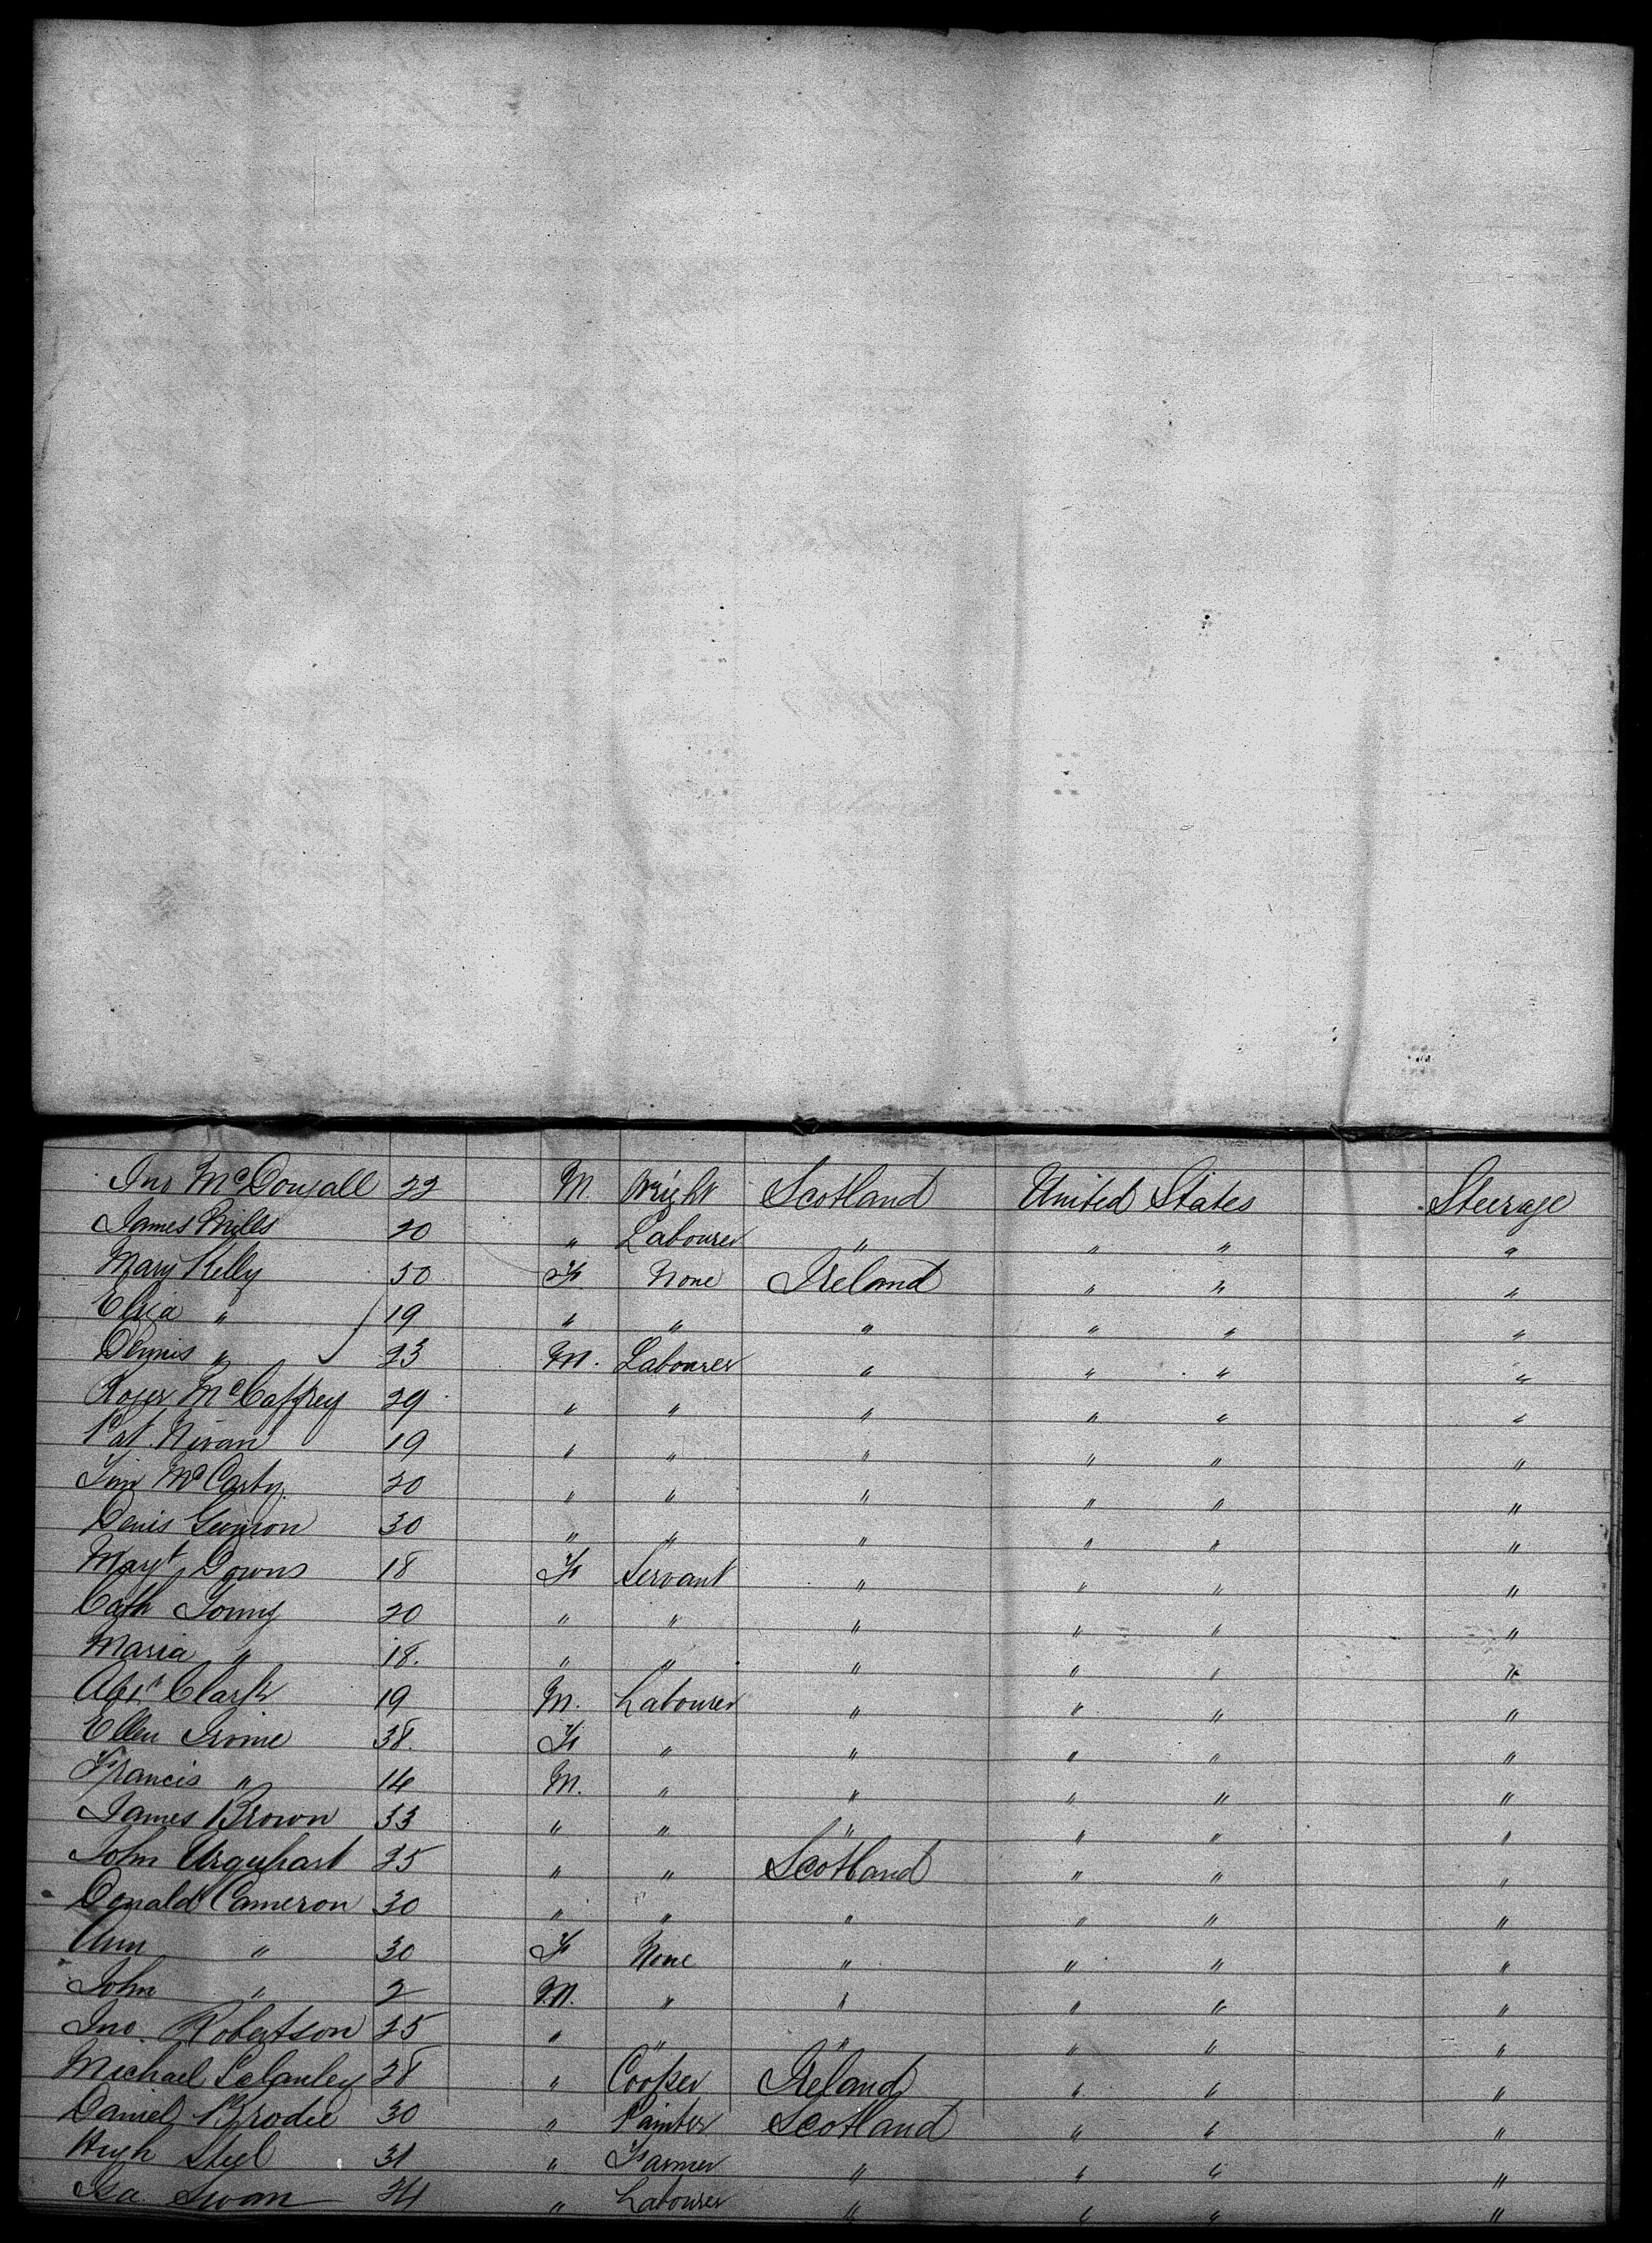 Jno McDougall 22 M. Wright Scotland United States Steerage
James Mills 20 " Labourer " " " "
Mary Kelly 50 F None Ireland " " "
Eliza " 19 " " " " " "
Dennis " 23 M. Labourer " " " "
Roger McCaffrey 29 " " " " " "
Pat. Nivan 19 " " " " " "
Tim McCarty 20 " " " " " "
Denis 30 " " " " " "
Margt Downs 18 F Servant " " " "
Cath 20 " " " " " "
Maria " 18. " " " " " "
Alexr Clark 19 M. Labourer " " " "
Ellen Irvine 38. F " " " " "
Francis " 14 M. " " " " "
James Brown 33 " " " " " "
John Urquhart 25 " " Scotland " " "
Donald Cameron 30 " " " " " "
Ann " 30 F None " " " "
John " 2 M. " " " " "
Jno. Robertson 25 " " " " " "
Michael 28 " Cooper Ireland " " "
Daniel Brodie 30 " Painter Scotland " " "
Hugh Steel 31 " Farmer " " " "
Isa Swan 24 " Labourer " " " "